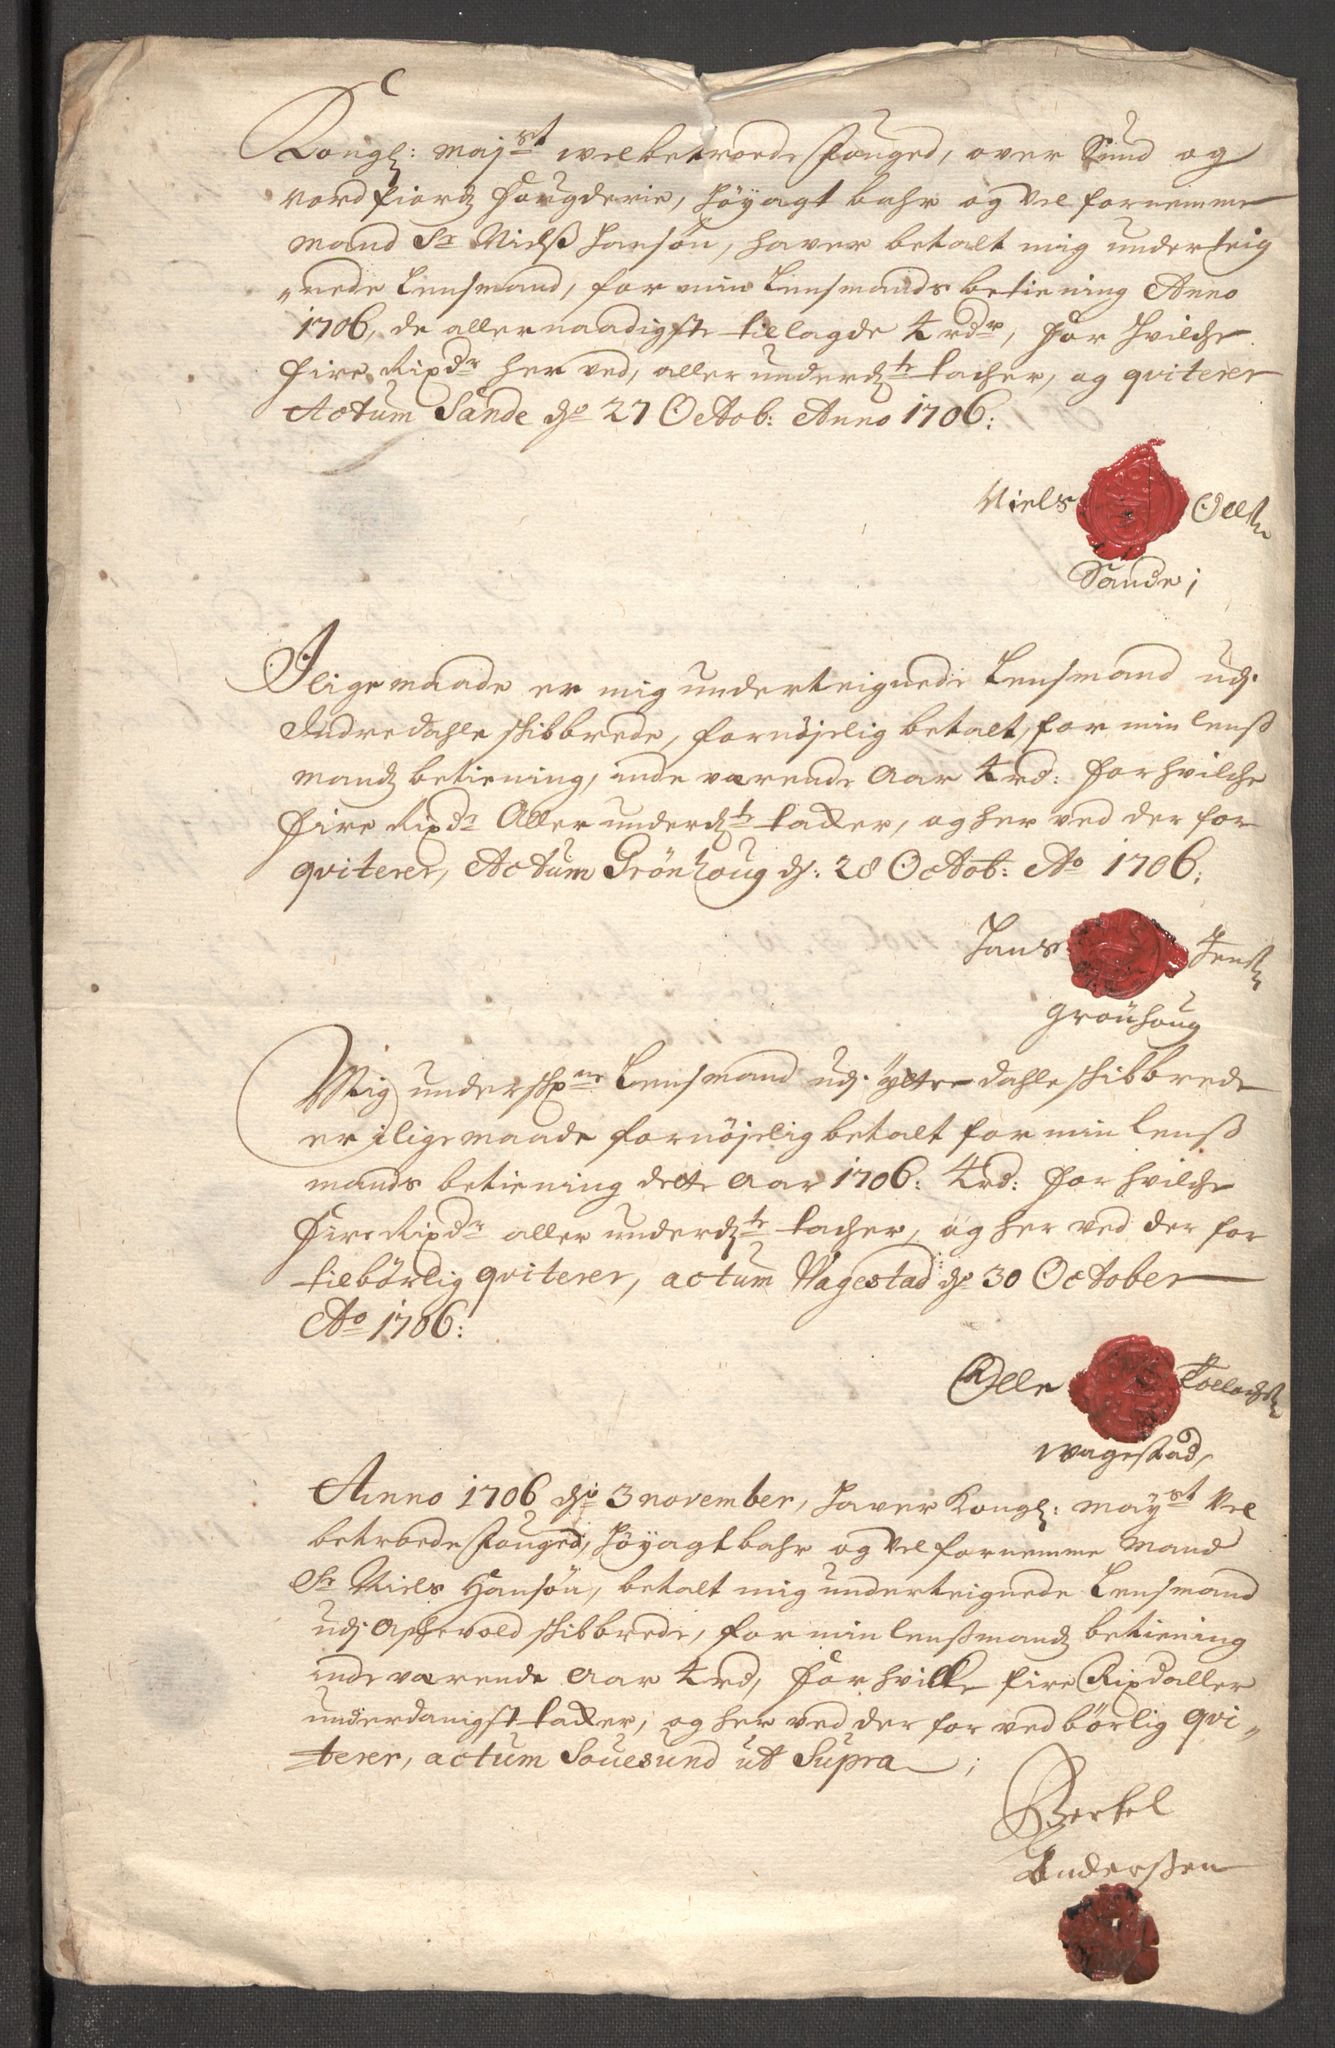 C
Kongl: mayst welbetroede fouged, over Sund og
Nordfiordz Fougderie, Höyagtbahr og Velfornemme
mand Sr Nielß Hansøn, haver betalt mig underteig
„nede Lensmand, for min Lensmands betiening Anno
1706, de allernaadigste tillagde 4 rdr, for hvilche
fire Rixdr her ved, aller underdtr tacher, og qviterer
Actum Sande dn 27 Octob: Anno 1706:
Niels Olls:
Sande;
I lige maade er mig underteignede Lensmand udj
Indre dahle skibbrede, fornøjelig betalt, for min lenß
mandz betiening, inde værende Aar 4 rd: for hvilche
fire Rixdr Aller underdtr takker, og her ved der for
qviterer, Actum Grönhoug d: 28 Octob: Ao 1706:
Hans Jenß:
Grönhoug
Mig underskrne Lensmand udj ÿttre dahle skibbrede
er i lige maade fornøjelig betalt for min lenß
mands betiening dette Aar 1706: 4 rd: for hvilche
fire Rixdr aller underdtr tacher, og her ved der for
tilbörlig qviterer, actum Wagestad dn 30 October
Ao 1706:
Olle
Wagestad,
Anno 1706 dn 3 november, haver Kongl: mayst Vel
betroede fouged, höyagtbahr og Velfornemme Mand
Sr Niels Hansøn, betalt mig underteignede Lensmand
udj Aschevold skibbrede, for min lenßmandz betiening
inde værende Aar 4 rd, for hvilke fire Rixdaller
underdanigst takker, og her ved der for ved børlig qvi„
terer, actum Souesund ut Supra;
Berkel
Anderßen